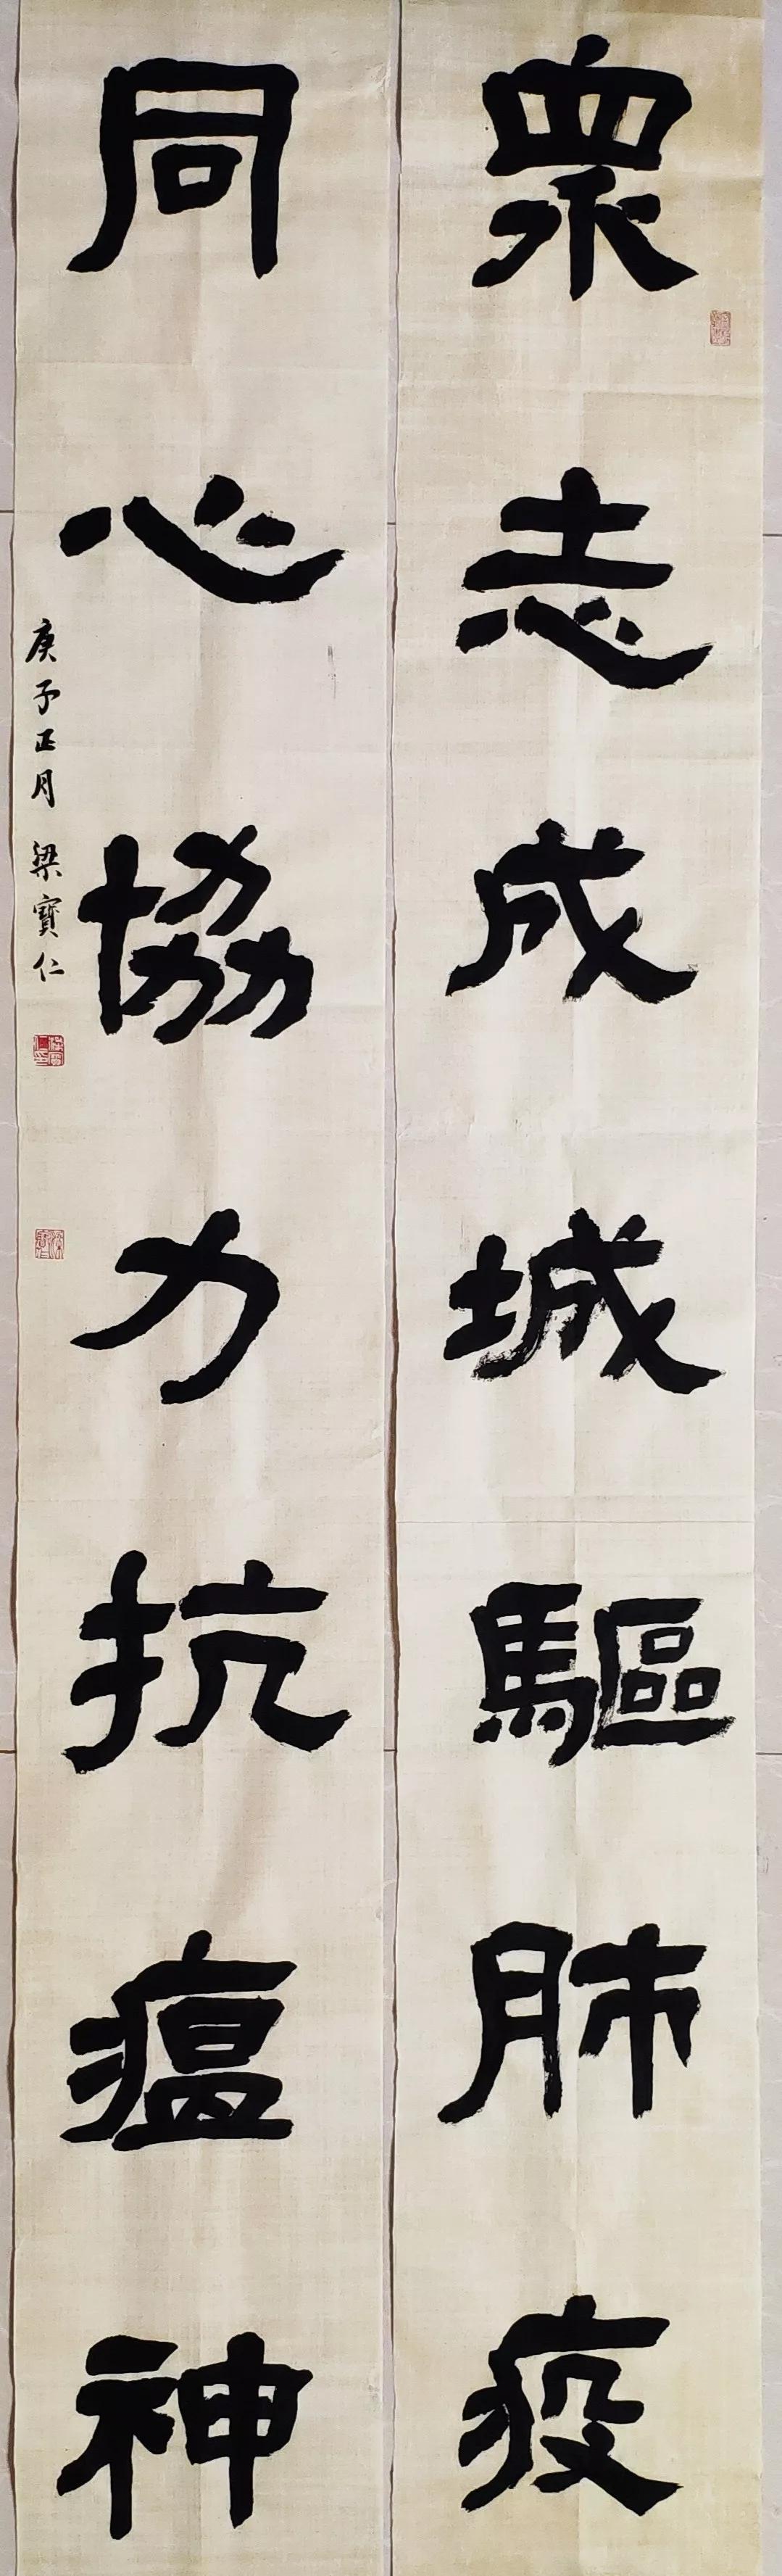 眾志成城驅肺疫
同心協力抗瘟神
庚子正月 梁寶仁